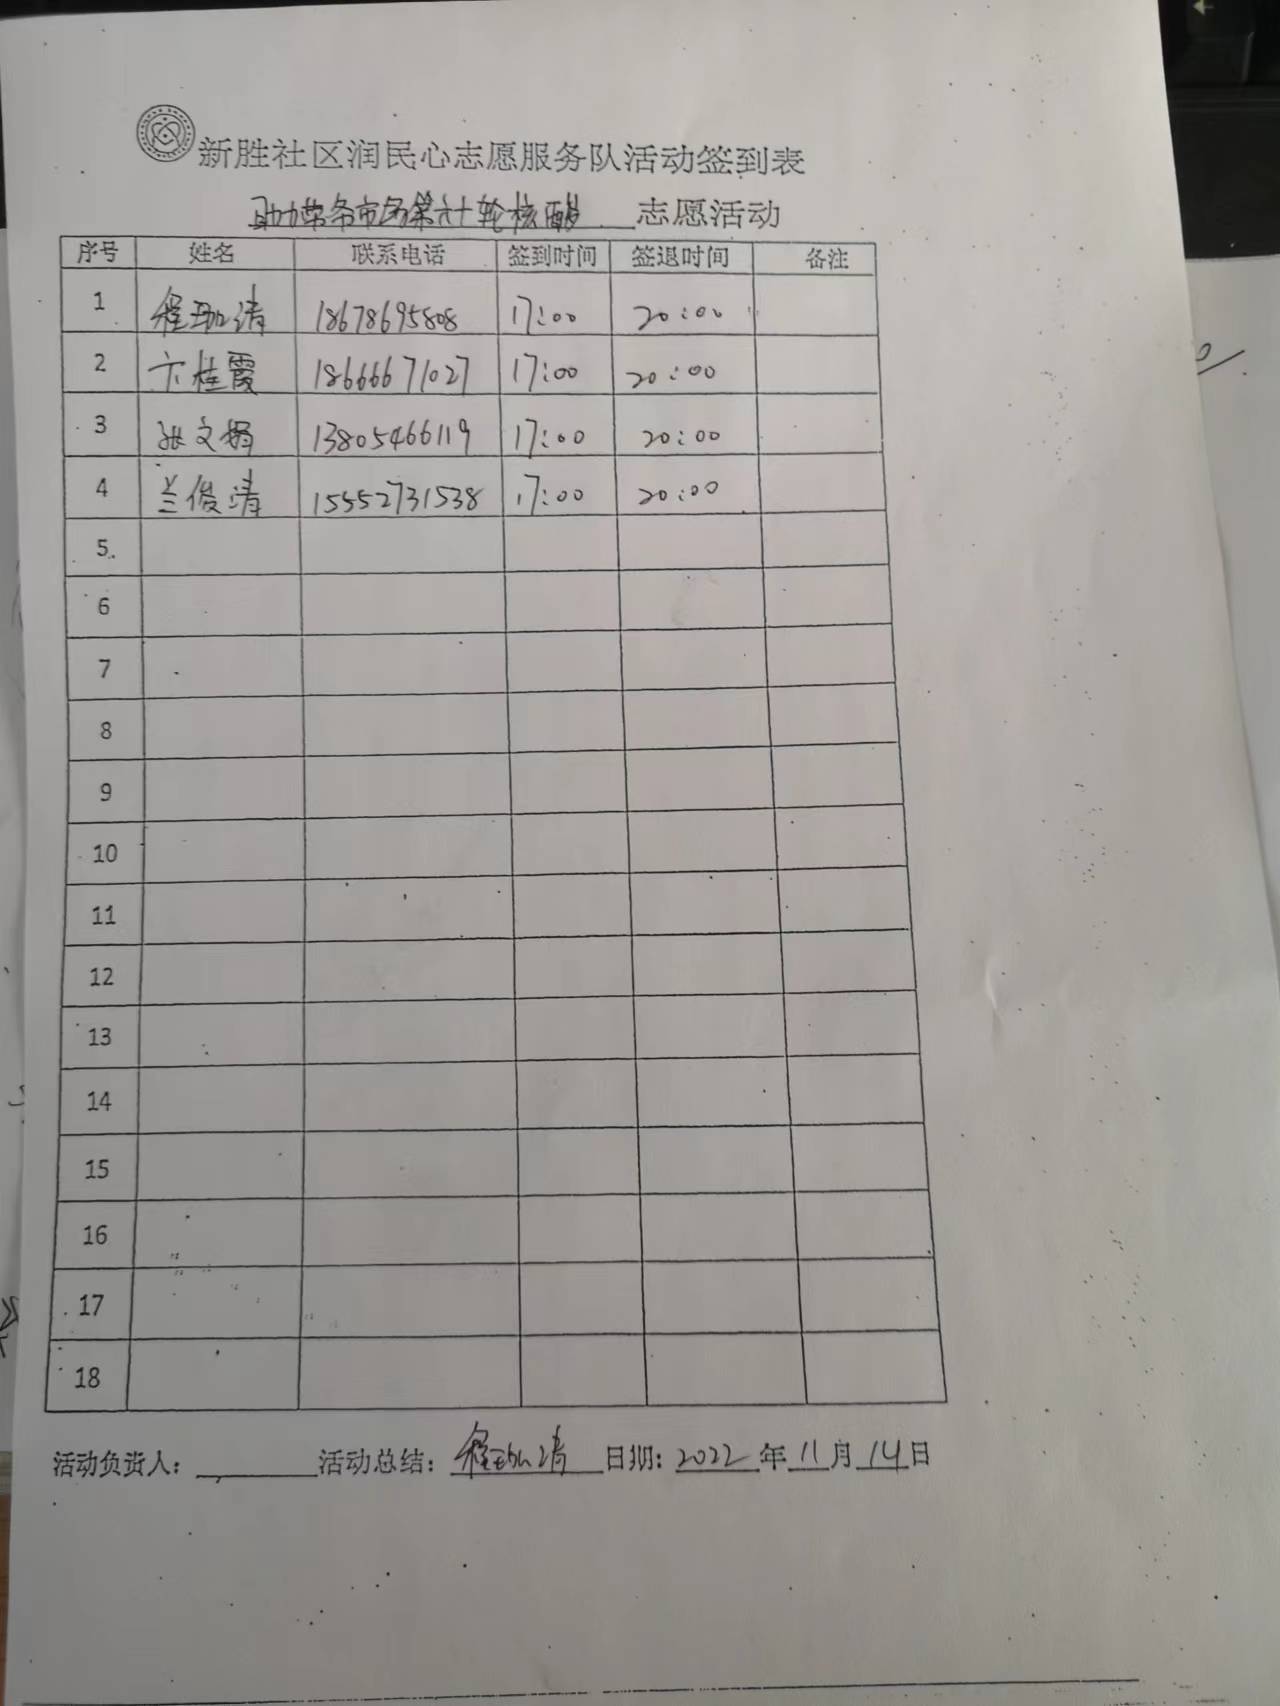 新胜社区润民心志愿服务队活动签到表
助力劳务市场第六十轮核酸 志愿活动
序号 姓名 联系电话 签到时间 签退时间 备注
1 程珈清 18678695808 17:00 20:00
2 卞桂霞 18666671027 17:00 20:00
3 张文娟 13805466119 17:00 20:00
4 兰俊清 15552731538 17:00 20:00
5
6
7
8
9
10
11
12
13
14
15
16
17
18
活动负责人: 活动总结: 程珈清 日期: 2022 年 11 月 14 日